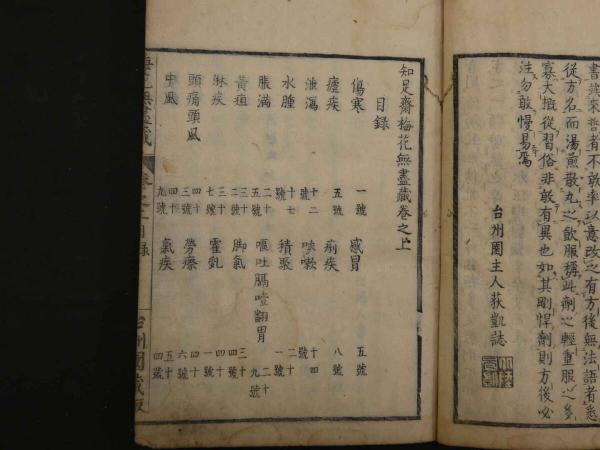 書幾來哲者不敢率以意改之有方後無法語者悉
從方名而湯煎散丸之飲服稱此劑之輕重服之多
寡大抵從習俗非敢有異也如其剛悍劑則方後必
注勿敢慢易焉
台州園主人荻凱誌
知足齋梅花無盡藏卷之上
目錄
傷寒 一號 感冒 五號
瘧疾 五號 痢疾 八號
泄瀉 十二號 咳嗽 十四號
水腫 十七號 積聚 二十一號
脹滿 二十五號 嘔吐膈噎翻胃 二十九號
黃疸 三十二號 脚氣 三十四號
淋疾 三十七號 霍亂 四十一號
頭痛頭風 四十三號 勞瘵 四十六號
中風 四十九號 氣疾 五十四號
梅花無盡藏
卷之上目錄
台州園藏版